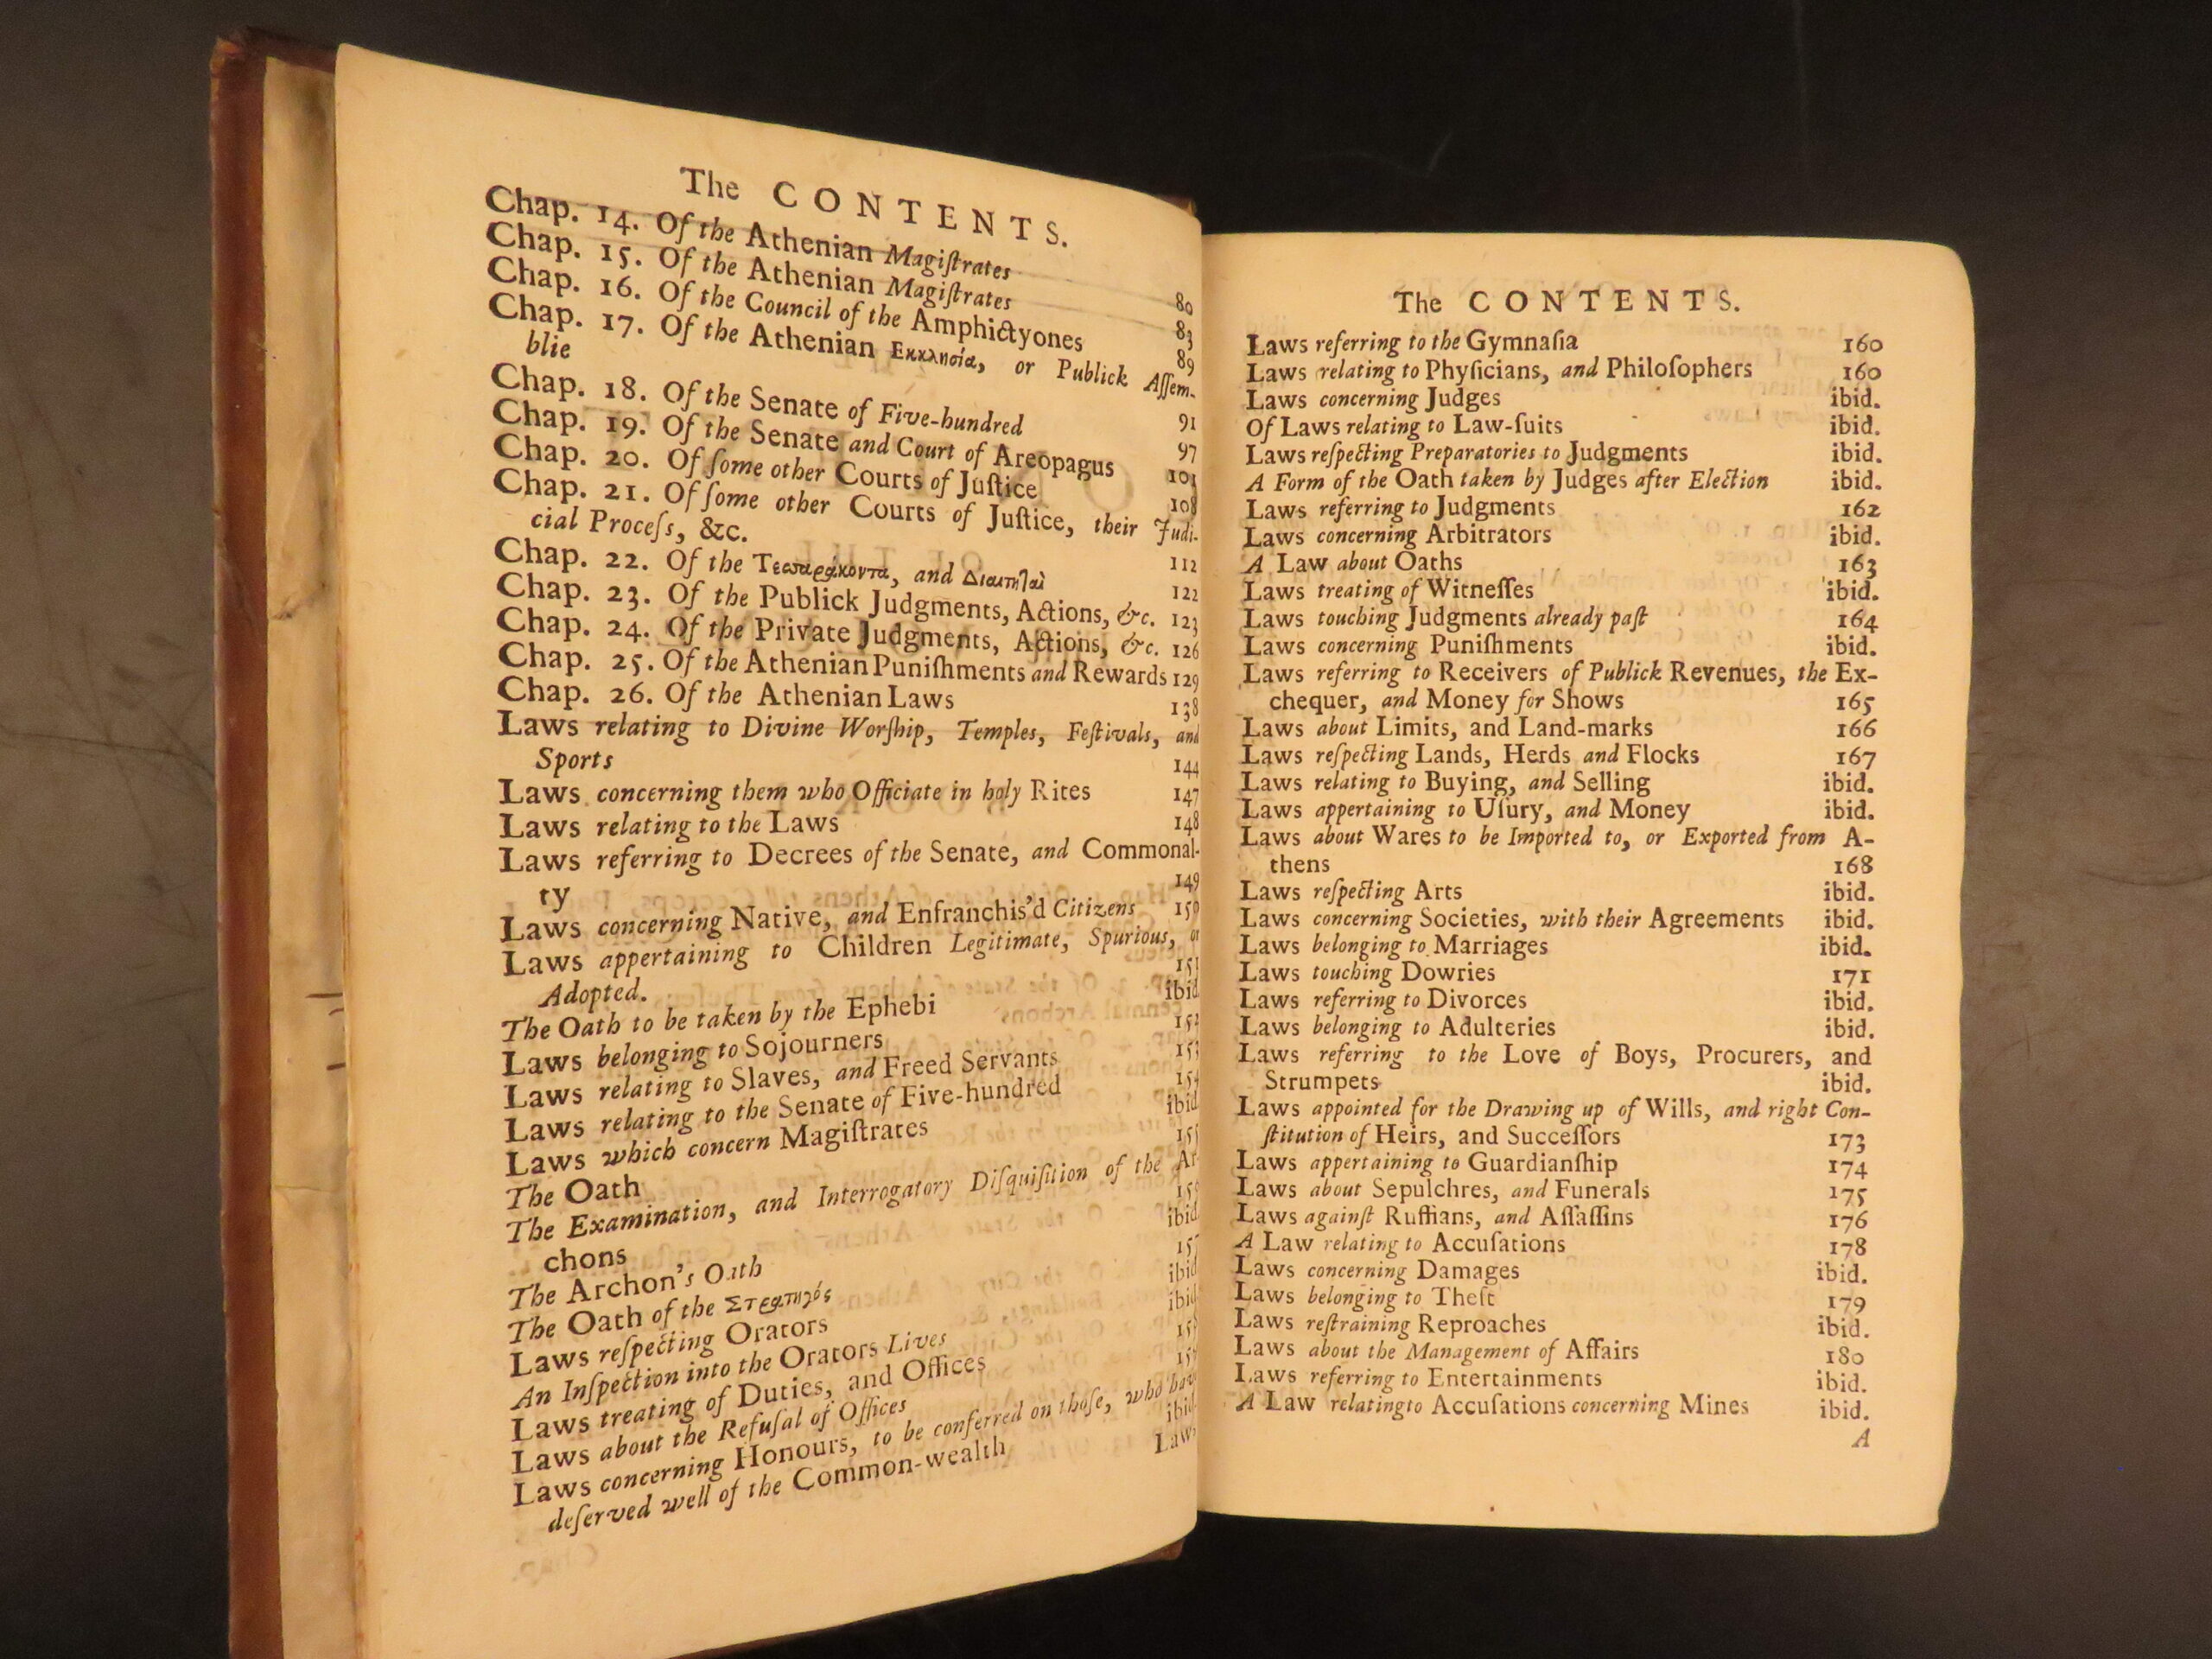 The CONTENTS.
Chap. 14. Of the Athenian Magiſtrates 80
Chap. 15. Of the Athenian Magiſtrates 83
Chap. 16. Of the Council of the Amphictyones 89
Chap. 17. Of the Athenian Εκκλησία, or Publick Aſſem-
blie 91
Chap. 18. Of the Senate of Five-hundred 97
Chap. 19. Of the Senate and Court of Areopagus 103
Chap. 20. Of ſome other Courts of Juſtice 108
Chap. 21. Of ſome other Courts of Juſtice, their Judi-
cial Proceſs, &c. 112
Chap. 22. Of the Τεσσαράκοντα, and Διαιτηταὶ 122
Chap. 23. Of the Publick Judgments, Actions, &c. 123
Chap. 24. Of the Private Judgments, Actions, &c. 126
Chap. 25. Of the Athenian Puniſhments and Rewards 129
Chap. 26. Of the Athenian Laws 138
Laws relating to Divine Worſhip, Temples, Feſtivals, and
Sports 144
Laws concerning them who Officiate in holy Rites 147
Laws relating to the Laws 148
Laws referring to Decrees of the Senate, and Commonal-
ty 149
Laws concerning Native, and Enfranchis'd Citizens 150
Laws appertaining to Children Legitimate, Spurious, or
Adopted. 151
The Oath to be taken by the Ephebi ibid
Laws belonging to Sojourners
Laws relating to Slaves, and Freed Servants
Laws relating to the Senate of Five-hundred
Laws which concern Magiſtrates ibid
The Oath
The Examination, and Interrogatory Diſquiſition of the Ar
chons
The Archon's Oath ibid
The Oath of the Στρατηγός
Laws reſpecting Orators ibid
An Inſpection into the Orators Lives ibid
Laws treating of Duties, and Offices
Laws about the Refuſal of Offices
Laws concerning Honours, to be conferred on thoſe, who have
deſerved well of the Common-wealth ibid
Laws
The CONTENTS.
Laws referring to the Gymnaſia 160
Laws relating to Phyſicians, and Philoſophers 160
Laws concerning Judges ibid.
Of Laws relating to Law-ſuits ibid.
Laws reſpecting Preparatories to Judgments ibid.
A Form of the Oath taken by Judges after Election ibid.
Laws referring to Judgments 162
Laws concerning Arbitrators ibid.
A Law about Oaths 163
Laws treating of Witneſſes ibid.
Laws touching Judgments already paſt 164
Laws concerning Puniſhments ibid.
Laws referring to Receivers of Publick Revenues, the Ex-
chequer, and Money for Shows 165
Laws about Limits, and Land-marks 166
Laws reſpecting Lands, Herds and Flocks 167
Laws relating to Buying, and Selling ibid.
Laws appertaining to Uſury, and Money ibid.
Laws about Wares to be Imported to, or Exported from A-
thens 168
Laws reſpecting Arts ibid.
Laws concerning Societies, with their Agreements ibid.
Laws belonging to Marriages ibid.
Laws touching Dowries 171
Laws referring to Divorces ibid.
Laws belonging to Adulteries ibid.
Laws referring to the Love of Boys, Procurers, and
Strumpets ibid.
Laws appointed for the Drawing up of Wills, and right Con-
ſtitution of Heirs, and Succeſſors 173
Laws appertaining to Guardianſhip 174
Laws about Sepulchres, and Funerals 175
Laws againſt Ruffians, and Aſſaſſins 176
A Law relating to Accuſations 178
Laws concerning Damages ibid.
Laws belonging to Theft 179
Laws reſtraining Reproaches ibid.
Laws about the Management of Affairs 180
Laws referring to Entertainments ibid.
A Law relatingto Accuſations concerning Mines ibid.
A